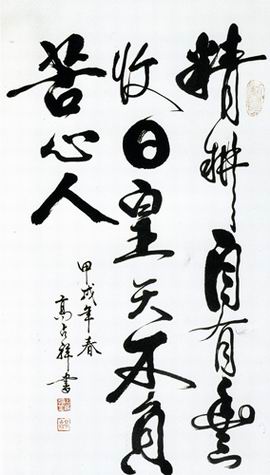 精耕自有豐
收日皇天不負
苦心人
甲戌年春
高占祥書